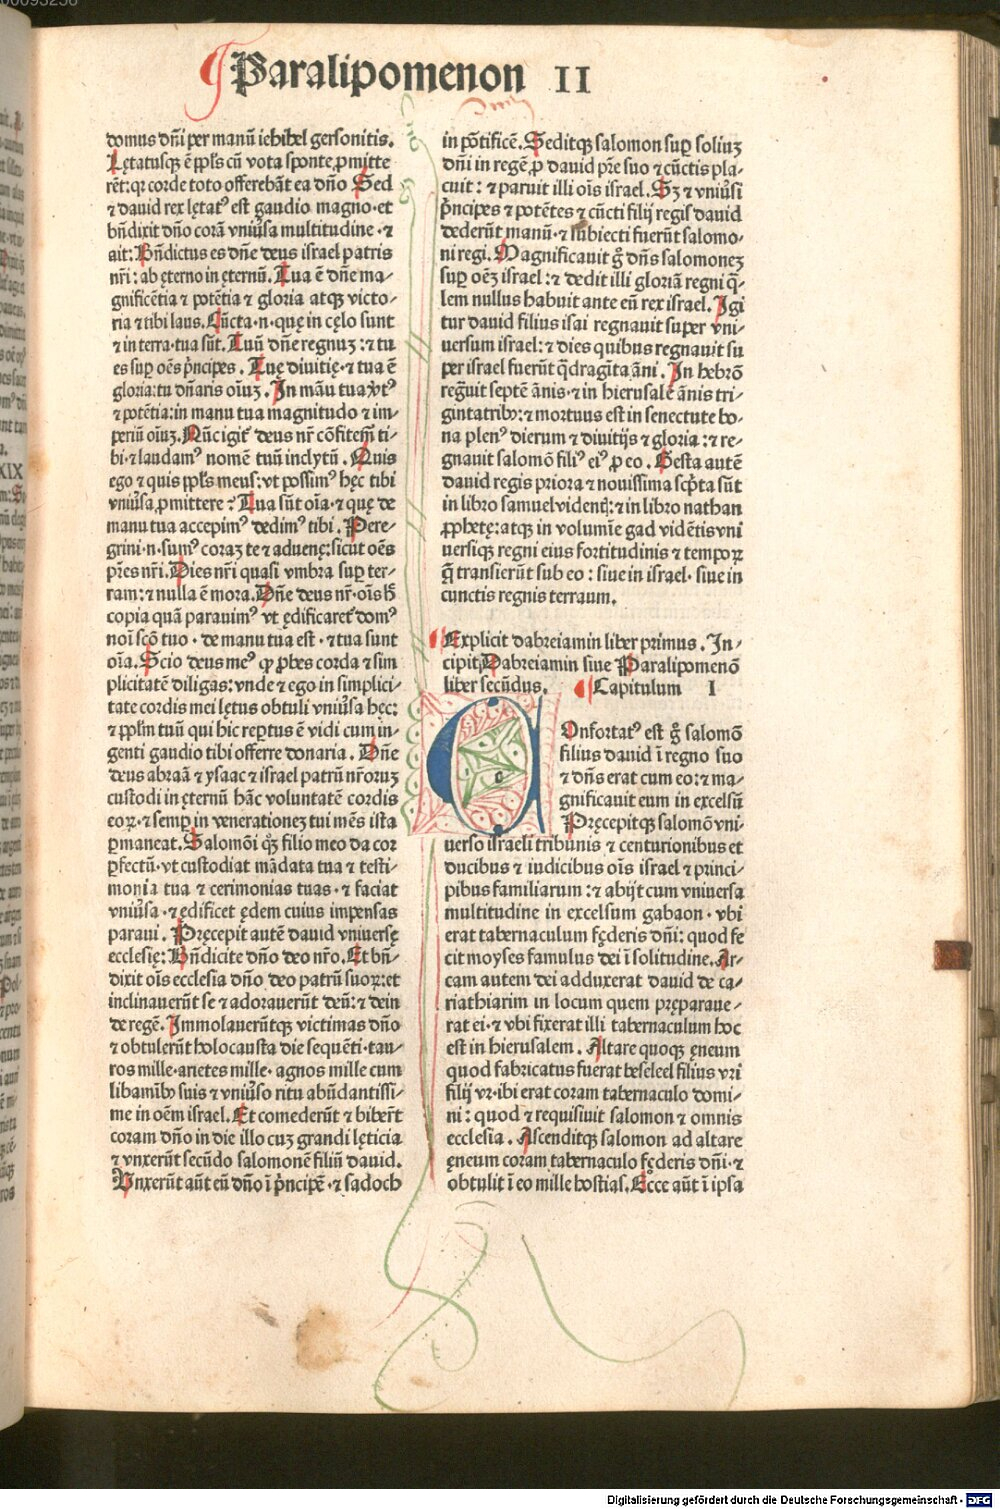 Paralipomenon II
domus dñi per manũ iehihel gersonitis.
Lętatusqȝ ē ppl's cũ vota sponte ꝓmitte
rēt: qꝛ corde toto offerebãt ea dño Sed
⁊ dauid rex lętatꝰ est gaudio magno· et
bñdixit dño corã vniũsa multitudine · ⁊
ait: Bñdictus es dñe deus israel patris
nr̃i: ab ęterno in ęternũ. Tua ē dñe ma⸗
gnificẽtia ⁊ potẽtia ⁊ gloria atqȝ victo⸗
ria ⁊ tibi laus. Cũcta·n·quę in cęlo sunt
⁊ in terra·tua sũt. Tuũ dñe regnuȝ: ⁊ tu
es suꝑ oẽs p̃ncipes. Tuę diuitię·⁊ tua ē
gloria: tu dñaris oĩuȝ. In mãu tua ꝟtꝰ
⁊ potẽtia: in manu tua magnitudo ⁊ im⸗
periũ oĩuȝ. Nũc igit̃ deus nr̃ cõfitem̃ ti⸗
bi·⁊ laudamꝰ nomẽ tuũ inclytũ. Quis
ego ⁊ quis ppl's meus: vt possimꝰ hęc tibi
vniũsa ꝓmittere? Tua sũt oĩa·⁊ quę de
manu tua accepimꝰ dedimꝰ tibi. Pere⸗
grini·n·sumꝰ coraȝ te ⁊ aduenę: sicut oẽs
pr̃es nr̃i. Dies nr̃i quasi vmbra suꝑ ter⸗
ram: ⁊ nulla ē mora. Dñe deus nr̃·oĩs hęc
copia quã parauimꝰ vt ędificaret̃ domꝰ
noĩ scõ tuo · de manu tua est · ⁊ tua sunt
oĩa. Scio deus meꝰ qꝙ ꝓbes corda ⁊ sim
plicitatē diligas: vnde ⁊ ego in simplici⸗
tate cordis mei lętus obtuli vniũsa hęc:
⁊ ppl'm tuũ qui hic reꝑtus ē vidi cum in⸗
genti gaudio tibi offerre donaria. Dñe
deus abraã ⁊ ysaac ⁊ israel patrũ nr̃oruȝ
custodi in ęternũ hãc voluntatē cordis
eoꝝ·⁊ semꝑ in venerationeȝ tui mẽs ista
ꝑmaneat. Salomõi qȝ filio meo da cor
ꝑfectũ·vt custodiat mãdata tua ⁊ testi⸗
monia tua ⁊ cerimonias tuas · ⁊ faciat
vniũsa ·⁊ ędificet ędem cuius impensas
paraui. Pręcepit autẽ dauid vniuersę
ecclesię: Bñdicite dño deo nr̃o. Et bñ⸗
dixit oĩs ecclesia dño deo patrũ suoꝝ: et
inclinauerũt se ⁊ adorauerũt deũ: ⁊ dein
de regē. Immolauerũtqȝ victimas dño
⁊ obtulerũt holocausta die sequẽti·tau⸗
ros mille·arietes mille· agnos mille cum
libamĩbꝰ suis ⁊ vniũso ritu abũdantissi⸗
me in oẽm israel. Et comederũt ⁊ biber̃t
coram dño in die illo cuȝ grandi lęticia
⁊ vnxerũt secũdo salomonẽ filiũ dauid.
Vnxerũt aũt eũ dño ĩ p̃ncipē·⁊ sadoch
in põtificē. Seditqȝ salomon suꝑ soliuȝ
dñi in regē ꝓ dauid pr̃e suo ⁊ cũctis pla⸗
cuit: ⁊ paruit illi oĩs israel. Sȝ ⁊ vniũsi
p̃ncipes ⁊ potẽtes ⁊ cũcti filij regis dauid
dederũt manũ·⁊ subiecti fuerũt salomo⸗
ni regi. Magnificauit gͦ dñs salomoneȝ
suꝑ oẽȝ israel: ⁊ dedit illi gloriã regni q̃⸗
lem nullus habuit ante eũ rex israel. Igi
tur dauid filius isai regnauit super vni⸗
uersum israel: ⁊ dies quibus regnauit su
per israel fuerũt q̃dragĩta ãni. In hebrõ
regnauit septē ãnis·⁊ in hierusalē ãnis tri⸗
gintatribꝰ: ⁊ mortuus est in senectute bo⸗
na plenꝰ dierum ⁊ diuitijs ⁊ gloria: ⁊ re⸗
gnauit salomõ filiꝰ eiꝰ ꝓ eo. Gesta autẽ
dauid regis priora ⁊ nouissima scp̃ta sũt
in libro samuel videntꝭ: ⁊ in libro nathan
ꝓphetę: atqȝ in volumĩe gad vidẽtis vni
uersiqȝ regni eius fortitudinis ⁊ tempoꝝ
q̃ transierũt sub eo: siue in israel· siue in
cunctis regnis terrarum.
Explicit dabreiamin liber primus. In⸗
cipit Dabreiamin siue Paralipomenõ
liber secũdus. Capitulum I
COnfortatꝰ est gͦ salomõ
filius dauid ĩ regno suo
⁊ dñs erat cum eo: ⁊ ma⸗
gnificauit eum in excelsũ
Pręcepitqȝ salomõ vni⸗
uerso israeli tribunis ⁊ centurionibus et
ducibus ⁊ iudicibus oĩs israel ⁊ princi⸗
pibus familiarum: ⁊ abijt cum vniuersa
multitudine in excelsum gabaon · vbi
erat tabernaculum fęderis dñi: quod fe
cit moyses famulus dei ĩ solitudine. Ar⸗
cam autem dei adduxerat dauid de ca⸗
riathiarim in locum quem pręparaue⸗
rat ei·⁊ vbi fixerat illi tabernaculum hoc
est in hierusalem. Altare quoqȝ ęneum
quod fabricatus fuerat beseleel filius vri
filij vr·ibi erat coram tabernaculo domi⸗
ni: quod ⁊ requisiuit salomon ⁊ omnis
ecclesia. Ascenditqȝ salomon ad altare
ęneum coram tabernaculo fęderis dñi·⁊
obtulit ĩ eo mille hostias. Ecce aũt ĩ ipsa
Digitalisierung gefördert durch die Deutsche Forschungsgemeinschaft - DFG